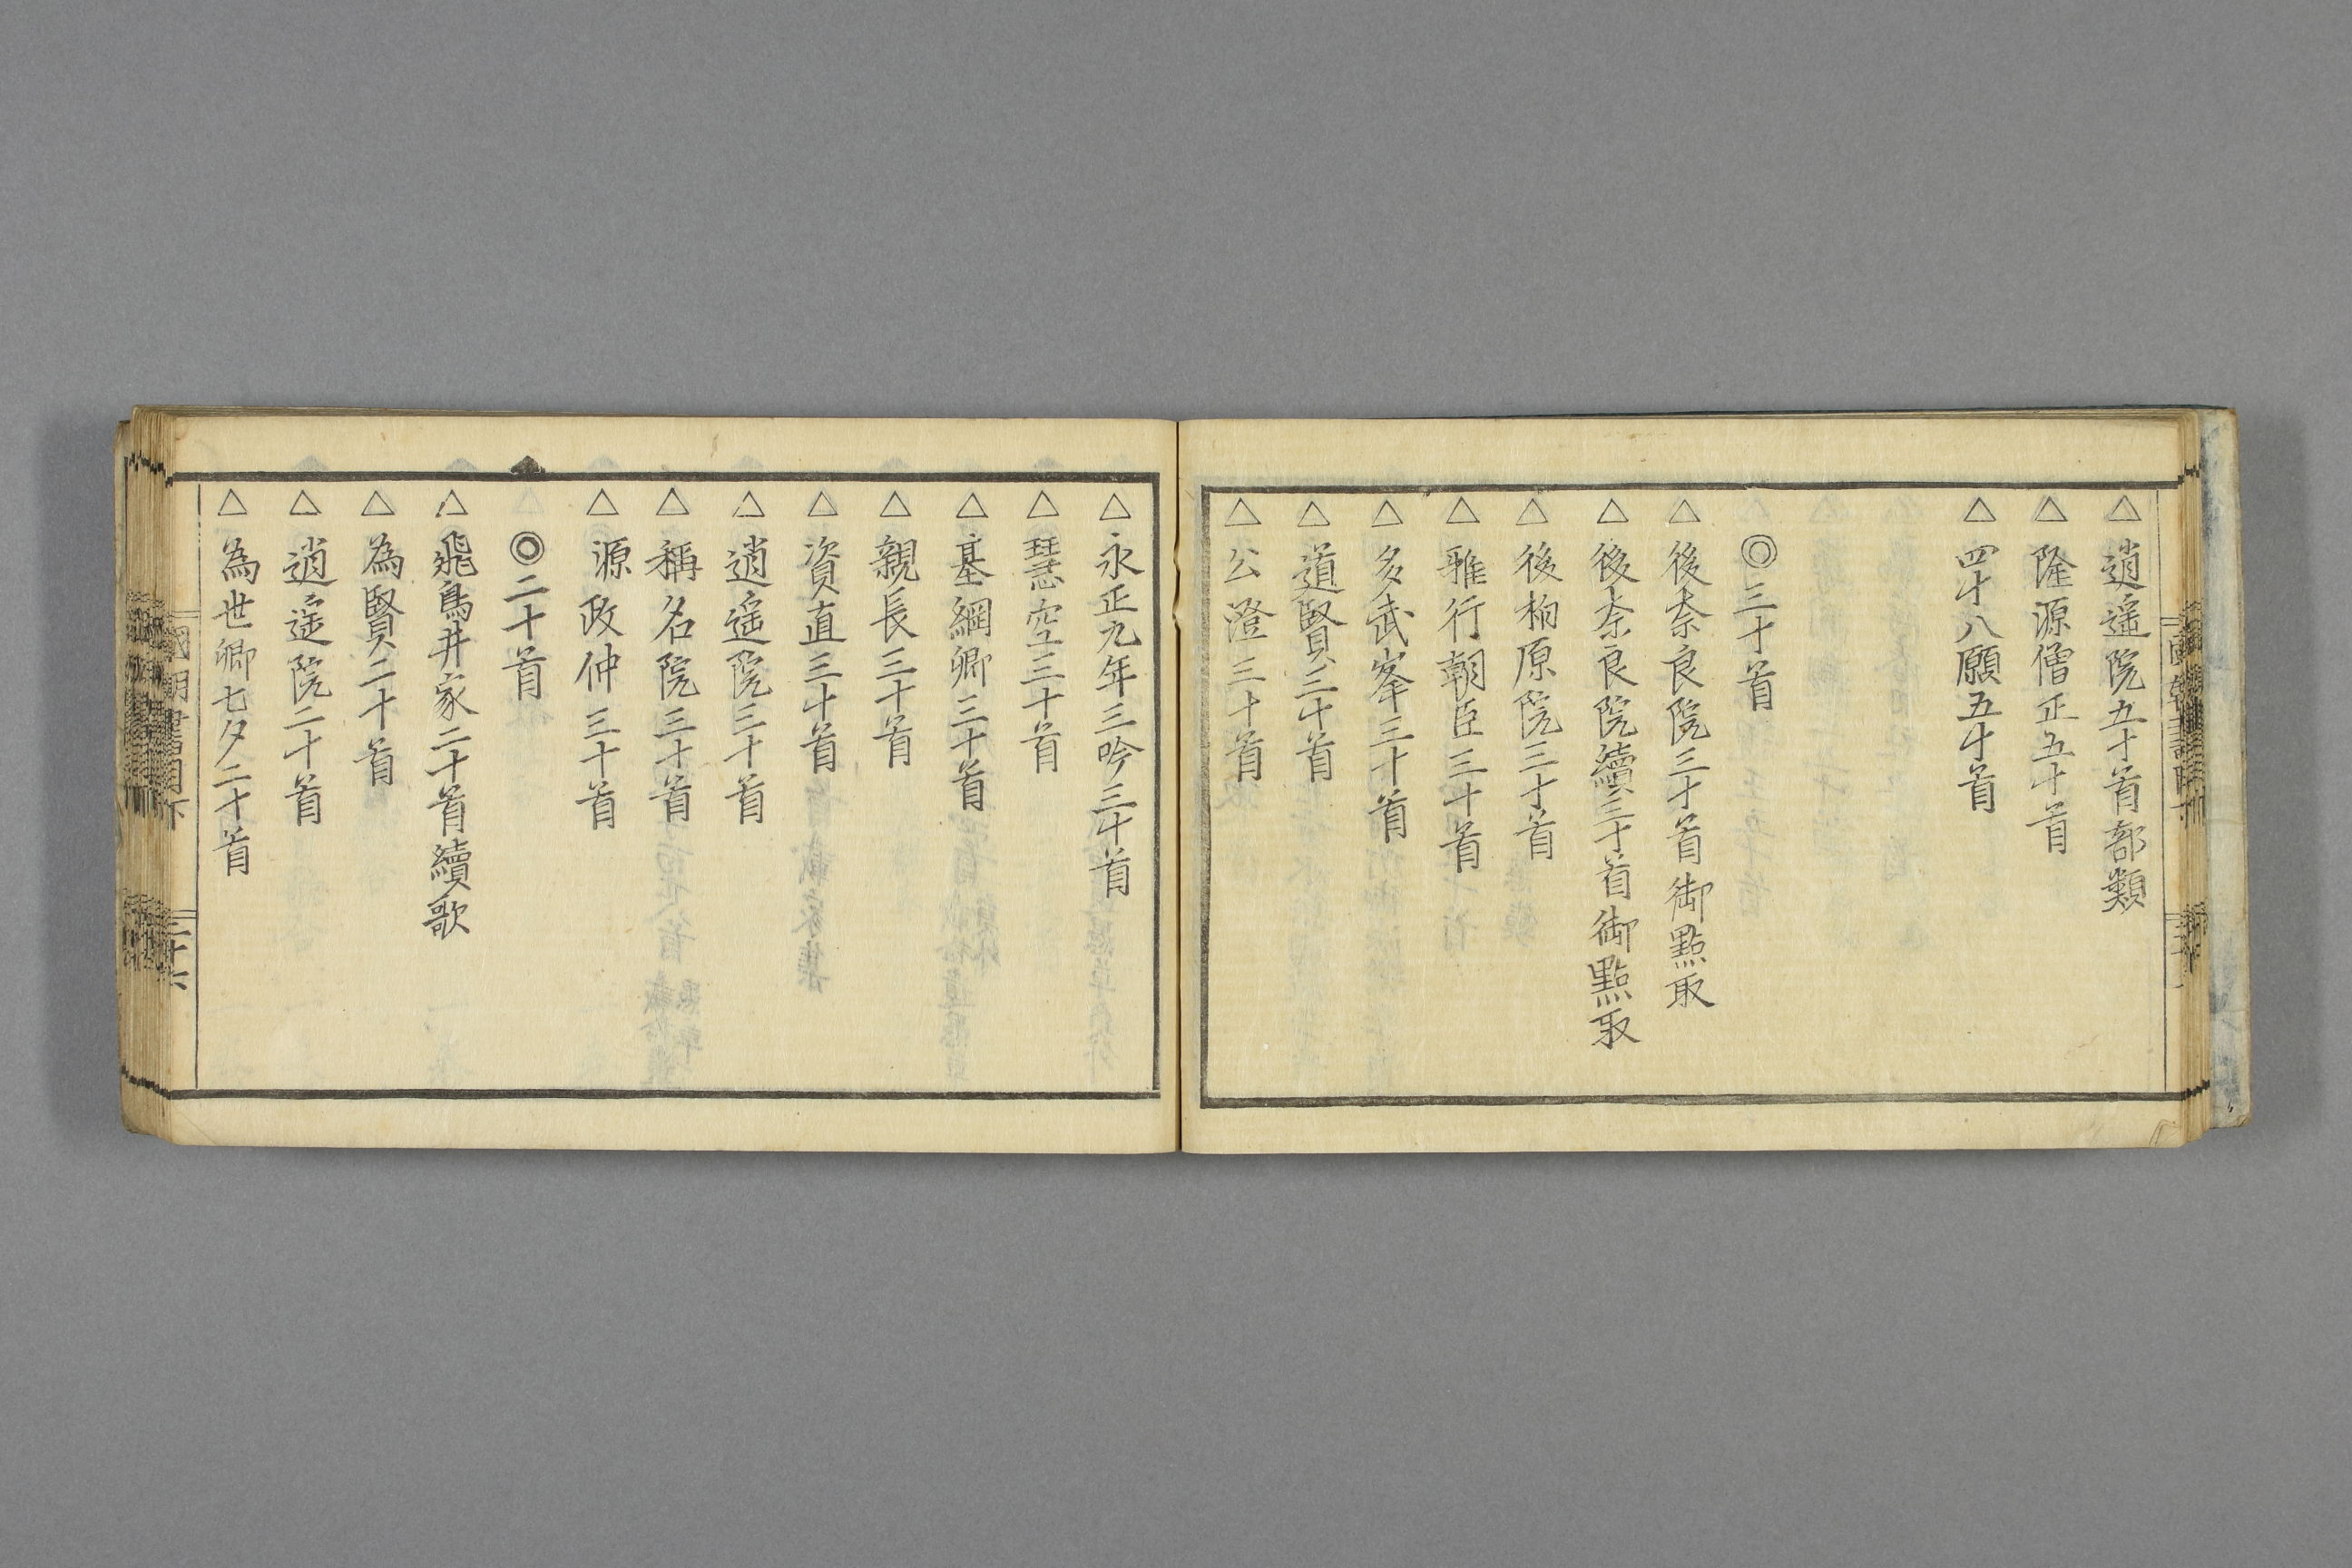 △逍遥院五十首部類
△隆源僧正五十首
△四十八願五十首
◎三十首
△後奈良院三十首御點取
△後奈良院續三十首御點取
△後柏原院三十首
△雅行朝臣三十首
△多武峯三十首
△道賢三十首
△公澄三十首
△永正九年三吟三十首
△琵空三十首
△基綱卿三十首
△親長三十首
△資直三十首
△逍遥院三十首
△稱名院三十首
△源政仲三十首
◎二十首
△飛鳥井家二十首續歌
△為賢二十首
△逍遥院二十首
△為世卿七夕二十首